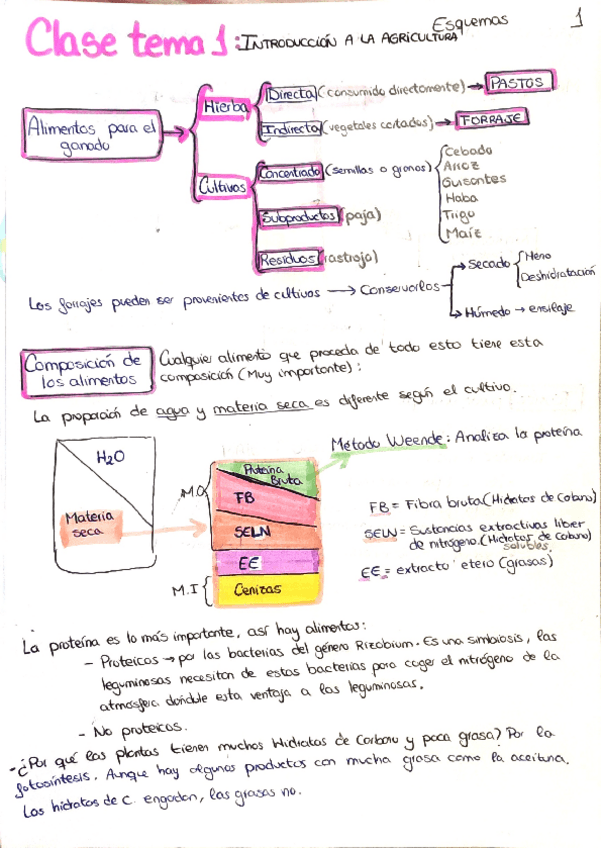 Esquemas
1
Clase tema 1: INTRODUCCIÓN A LA AGRICULTURA
Alimentos para el ganado
Hierba
Directa (consumido directamente) → PASTOS
Indirecta (vegetales cortados) → FORRAJE
Cultivos
Concentrado (semillas o granos)
Cebada
Arroz
Guisantes
Haba
Trigo
Maíz
Subproductos (paja)
Residuos (rastrojo)
Los forrajes pueden ser provenientes de cultivos → Conservarlos
Secado
Heno
Deshidratación
Húmedo → ensilaje
Composición de los alimentos
Cualquier alimento que proceda de todo esto tiene esta
composición (Muy importante):
La proporción de agua y materia seca es diferente según el cultivo.
Método Weende: Analiza la proteína
H₂O
Materia seca
M.O
Proteína Bruta
FB
SELN
EE
M.I
Cenizas
FB = Fibra bruta (Hidratos de Carbano)
SELN = Sustancias extractivas liber
de nitrógeno. (Hidratos de Carbano)
solubles.
EE = extracto etero (grasas)
La proteína es lo más importante, así hay alimentos:
- Proteicos → por las bacterias del género Rizobium. Es una simbiosis, las
leguminosas necesitan de estas bacterias para coger el nitrógeno de la
atmosfera dandole esta ventaja a las leguminosas.
- No proteicos.
- ¿Por qué las plantas tienen muchos Hidratos de Carbono y poca grasa? Por la
fotosíntesis. Aunque hay algunos productos con mucha grasa como la aceituna.
Los hidratos de C. engordan, las grasas no.